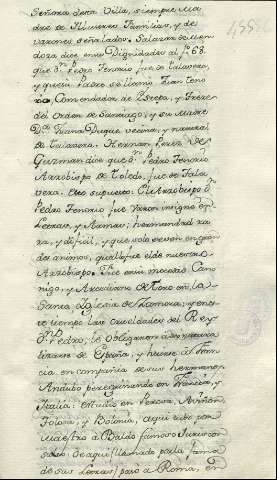 Señora desta Villa, siempre Ma-
dre de Ilustres Familias, y de
varones señalados. Salazar de Men-
doza dice en sus Dignidades al fº 68.
que Dn. Pedro Tenorio fue de Talavera,
y que su Padre se llamó Juan Teno-
rio, Comendador de Estepa, y Freyre
del Orden de Santiago, y su Madre
Da. Juana Duque vecina, y natural
de Talavera. Hernan Perez de
Guzman dice que Dn. Pedro Tenorio
Arzobispo de Toledo, fue de Tala-
vera. Esto supuesto. El Arzobispo Dn.
Pedro Tenorio fue Varon insigne en
Letras, y Armas; hermandad ra-
ra, y dificil, y que solo se ve en gran-
des animos, qual fue el de nuestro
Arzobispo. Fue en su mocedad Cano-
nigo, y Arcediano de Toro en la
Santa Iglesia de Zamora; y en es-
te tiempo las crueldades del Rey
Dn. Pedro, le obligaron a
de España, y huirse a Fran-
cia en compañia de sus hermanos
Andubo peregrinando en Francia, y
Italia: estudió en Perosa, Aviñon
Tolosa, y Bolonia, aqui tubo por
Maestro a Baldo famoso Juriscon-
sulto de aqui (llamado por la fama
de sus Letras) pasó a Roma, en